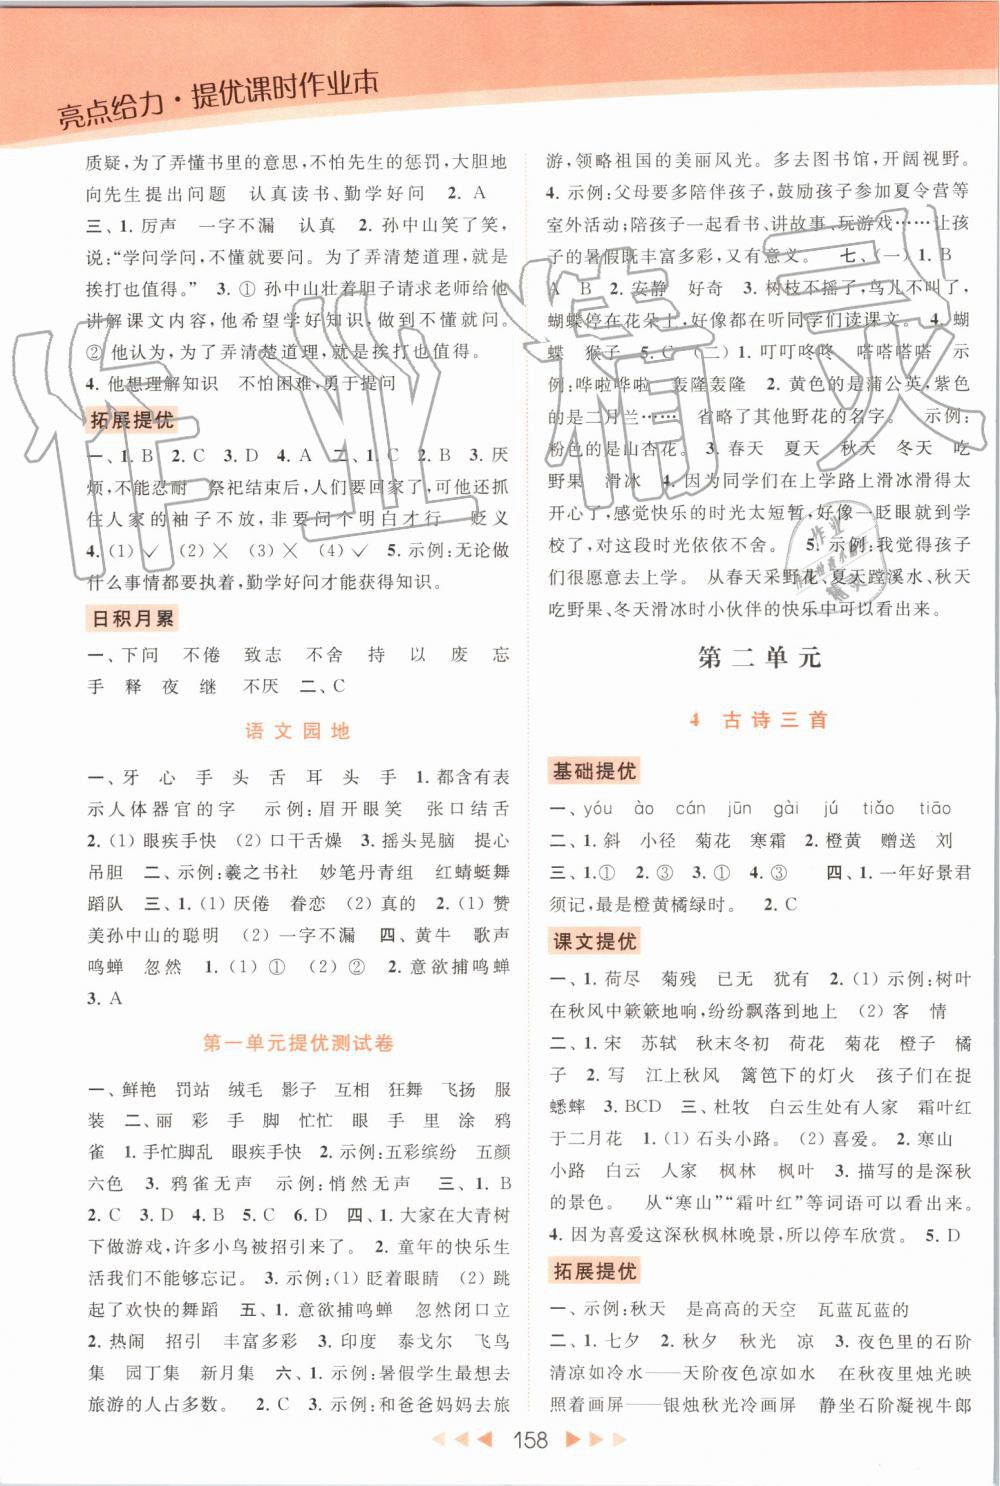 亮点给力·提优课时作业本
质疑,为了弄懂书里的意思,不怕先生的惩罚,大胆地
向先生提出问题　认真读书、勤学好问　2. A
三、1. 厉声　一字不漏　认真　2. 孙中山笑了笑,
说:“学问学问,不懂就要问。为了弄清楚道理,就是
挨打也值得。”　3. ① 孙中山壮着胆子请求老师给他
讲解课文内容,他希望学好知识,做到不懂就问。
② 他认为,为了弄清楚道理,就是挨打也值得。
4. 他想理解知识　不怕困难,勇于提问
拓展提优
一、1. B　2. C　3. D　4. A　二、1. C　2. B　3. 厌
烦,不能忍耐　祭祀结束后,人们要回家了,可他还抓
住人家的袖子不放,非要问个明白才行　贬义
4. (1) ✓　(2) ×　(3) ×　(4) ✓　5. 示例:无论做
什么事情都要执着,勤学好问才能获得知识。
日积月累
一、下问　不倦　致志　不舍　持　以　废　忘
手　释　夜　继　不厌　二、C
语文园地
一、牙　心　手　头　舌　耳　头　手　1. 都含有表
示人体器官的字　示例:眉开眼笑　张口结舌
2. (1) 眼疾手快　(2) 口干舌燥　3. 摇头晃脑　提心
吊胆　二、示例:羲之书社　妙笔丹青组　红蜻蜓舞
蹈队　三、1. (1) 厌倦　眷恋　(2) 真的　2. (1) 赞
美孙中山的聪明　(2) 一字不漏　四、黄牛　歌声
鸣蝉　忽然　1. (1) ①　(2) ②　2. 意欲捕鸣蝉
3. A
第一单元提优测试卷
一、鲜艳　罚站　绒毛　影子　互相　狂舞　飞扬　服
装　二、丽　彩　手　脚　忙忙　眼　手　里　涂　鸦
雀　1. 手忙脚乱　眼疾手快　2. 示例:五彩缤纷　五颜
六色　3. 鸦雀无声　示例:悄然无声　三、1. B
2. C　3. D　4. B　5. C　6. D　四、1. 大家在大青树
下做游戏,许多小鸟被招引来了。　2. 童年的快乐生
活我们不能够忘记。　3. 示例:(1) 眨着眼睛　(2) 跳
起了欢快的舞蹈　五、1. 意欲捕鸣蝉　忽然闭口立
2. 热闹　招引　丰富多彩　3. 印度　泰戈尔　飞鸟
集　园丁集　新月集　六、1. 示例:暑假学生最想去
旅游的人占多数。　2. C　3. 示例:和爸爸妈妈去旅
游,领略祖国的美丽风光。多去图书馆,开阔视野。
4. 示例:父母要多陪伴孩子,鼓励孩子参加夏令营等
室外活动;陪孩子一起看书、讲故事、玩游戏……让孩
子的暑假既丰富多彩,又有意义。　七、(一) 1. B
A　B　2. 安静　好奇　3. 树枝不摇了,鸟儿不叫了,
蝴蝶停在花朵上,好像都在听同学们读课文。　4. 蝴
蝶　猴子　5. C　(二) 1. 叮叮咚咚　嗒嗒嗒嗒　示
例:哗啦哗啦　轰隆轰隆　2. 黄色的是蒲公英,紫色
的是二月兰……　省略了其他野花的名字。　示例:
粉色的是山杏花。　3. 春天　夏天　秋天　冬天　吃
野果　滑冰　4. 因为同学们在上学路上滑滑得太
开心了,感觉快乐的时光太短暂,好像一眨眼就到学
校了,对这段时光依依不舍。　5. 示例:我觉得孩子
们很愿意去上学。　从春天采野花、夏天蹚溪水、秋天
吃野果、冬天滑冰时小伙伴的快乐中可以看出来。
第二单元
4　古诗三首
基础提优
一、yóu　ào　cán　jūn　gài　jú　tiǎo　tiāo
二、1. 斜　小径　菊花　寒霜　2. 橙黄　赠送　刘
三、1. ①　2. ③　3. ①　4. ③　四、1. 一年好景君
须记,最是橙黄橘绿时。　2. C
课文提优
一、1. 荷尽　菊残　已无　犹有　2. (1) 示例:树叶
在秋风中簌簌地响,纷纷飘落到地上　(2) 客　情
二、1. 宋　苏轼　秋末冬初　荷花　菊花　橙子　橘
子　2. 写　江上秋风　篱笆下的灯火　孩子们在捉
蟋蟀　3. BCD　三、杜牧　白云生处有人家　霜叶红
于二月花　1. (1) 石头小路。　(2) 喜爱。　2. 寒山
小路　白云　人家　枫林　枫叶　3. 描写的是深秋
的景色。　从“寒山”“霜叶红”等词语可以看出来。
4. 因为喜爱这深秋枫林晚景,所以停车欣赏。　5. D
拓展提优
一、示例:秋天　是高高的天空　瓦蓝瓦蓝的
二、1. 七夕　2. 秋夕　秋光　凉　3. 夜色里的石阶
清凉如冷水——天阶夜色凉如水　在秋夜里烛光映
着画屏——银烛秋光冷画屏　静坐石阶凝视牛郎
158
作业精灵